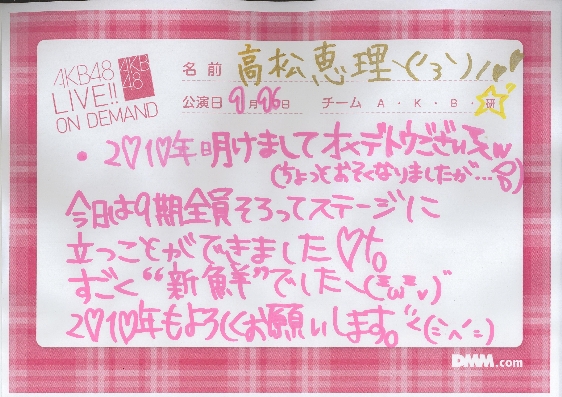 AKB48
LIVE!!
ON DEMAND
AKB
48
名前 高松恵理ヽ('ο')ノ♥
公演日 1月06日 チーム A・K・B・研
・2♡1♡年明けましてオメデトウございますw
(ちょっとおそくなりましたが…
今日は9期全員そろってステージに
立つことができました♡
すごく“新鮮”でした
2♡1♡年もよろしくお願いします。
DMM.com